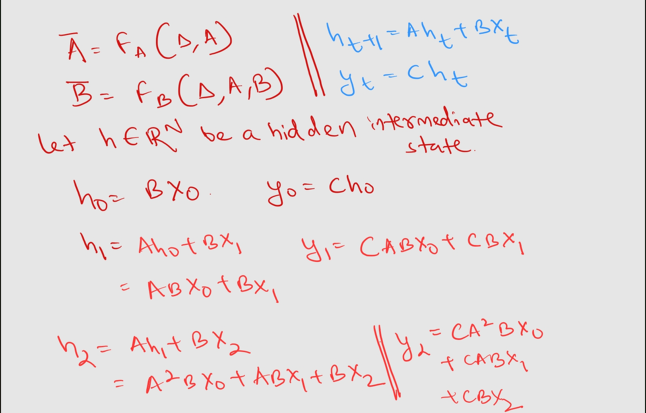 Ā = f_A (Δ, A)
B̄ = f_B (Δ, A, B)
h_{t+1} = Ah_t + BX_t
y_t = Ch_t
Let h ∈ ℝ^N be a hidden intermediate
state.
h_0 = BX_0. y_0 = Ch_0
h_1 = Ah_0 + BX_1 y_1 = CABX_0 + CBX_1
= ABX_0 + BX_1
h_2 = Ah_1 + BX_2
= A²BX_0 + ABX_1 + BX_2
y_2 = CA²BX_0
+ CABX_1
+ CBX_2